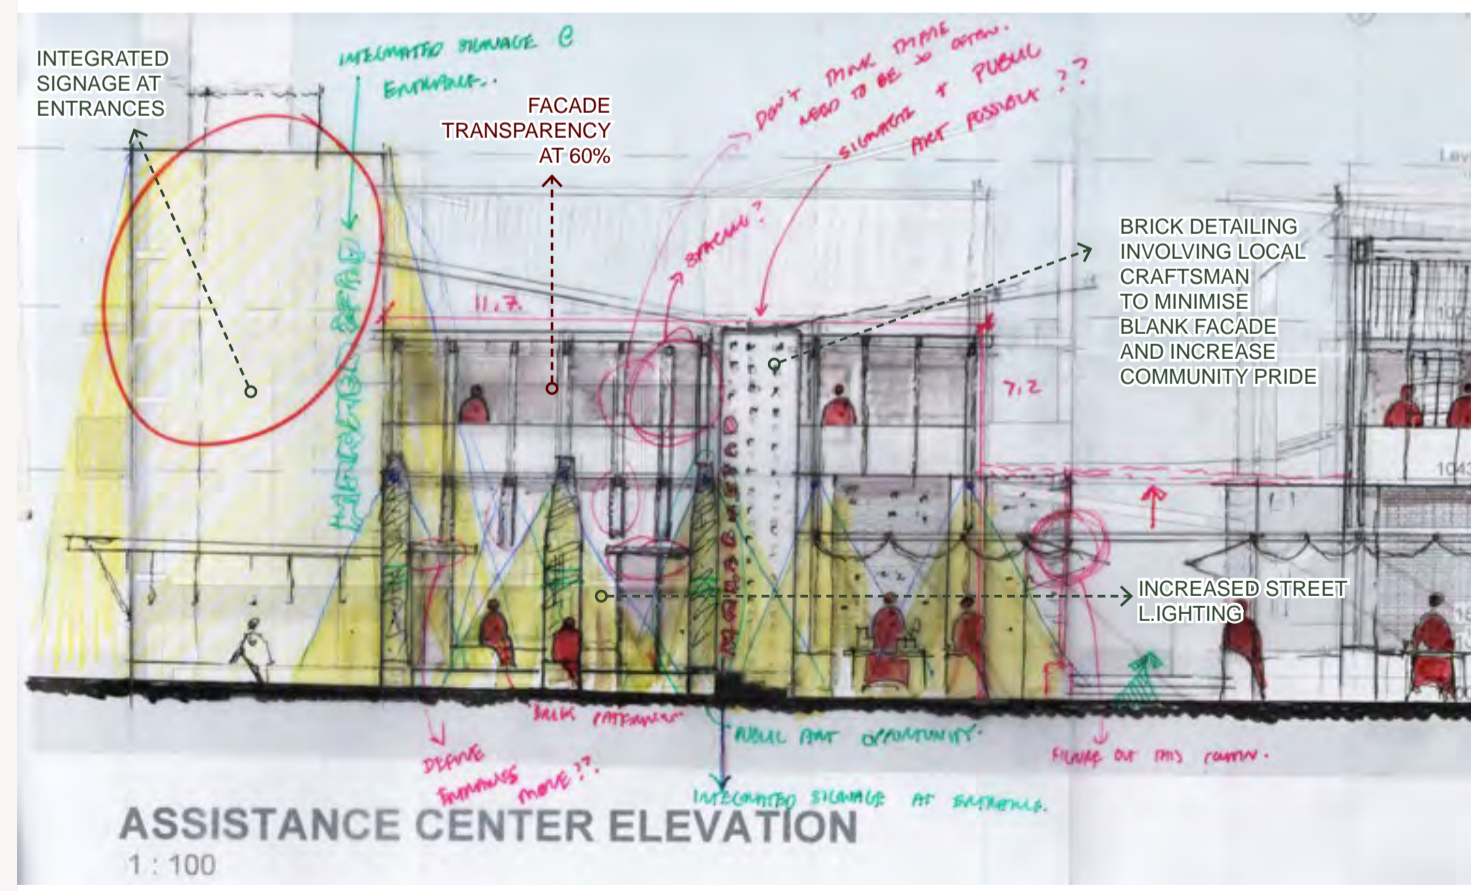 INTEGRATED
SIGNAGE AT
ENTRANCES
INTEGRATED SIGNAGE @
ENTRANCE..
FACADE
TRANSPARENCY
AT 60%
DON'T THINK THESE
NEED TO BE SO OFTEN.
SIGNAGE + PUBLIC
ART POSSIBLE ??
SPACING?
11,7
7,2
BRICK DETAILING
INVOLVING LOCAL
CRAFTSMAN
TO MINIMISE
BLANK FACADE
AND INCREASE
COMMUNITY PRIDE
INCREASED STREET
L.IGHTING
DEFINE
ENTRANCES
MORE??
PUBLIC ART OPPORTUNITY.
FIGURE OUT THIS
INTEGRATED SIGNAGE AT ENTRANCE.
ASSISTANCE CENTER ELEVATION
1 : 100